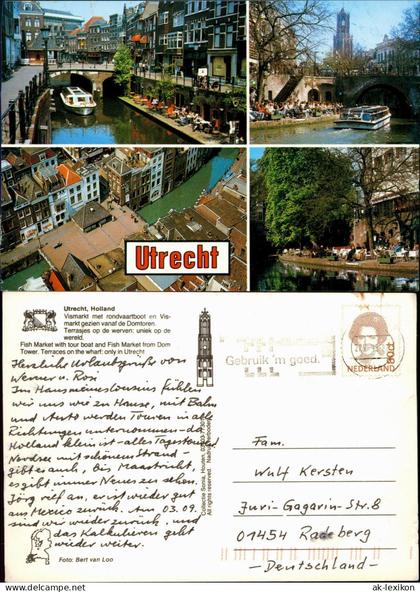 Utrecht
Utrecht, Holland
Vismarkt met rondvaartboot en Vis-
markt gezien vanaf de Domtoren.
Terrasjes op de werven: uniek op de
wereld.
Fish Market with tour boat and Fish Market from Dom
Tower. Terraces on the wharf: only in Utrecht
Herzliche Urlaubsgrüße von
Werner u. Rosi
Im Hausmeneslousins fühlen
wir uns wie zu Hause, mit Bahn
und Auto werden Touren in alle
Richtungen unternommen - da
Holland klein ist - alles Tagestouren
Nordsee mit schönem Strand -
gibt es auch, bis Maastricht,
es gibt immer Neues zu sehen.
Jörg rief an, er ist wieder gut
aus Mexico zurück. Am 03.09.
sind wir wieder zurück, und
das Kalkulieren geht
wieder weiter.
Foto: Bert van Loo
Collectie Sonia, Houten,
All rights reserved
Gebruik 'm goed.
80ct
NEDERLAND
Fam.
Wulf Kersten
Juri-Gagarin-Str. 8
01454 Radeberg
-Deutschland-
© ak-lexikon.com